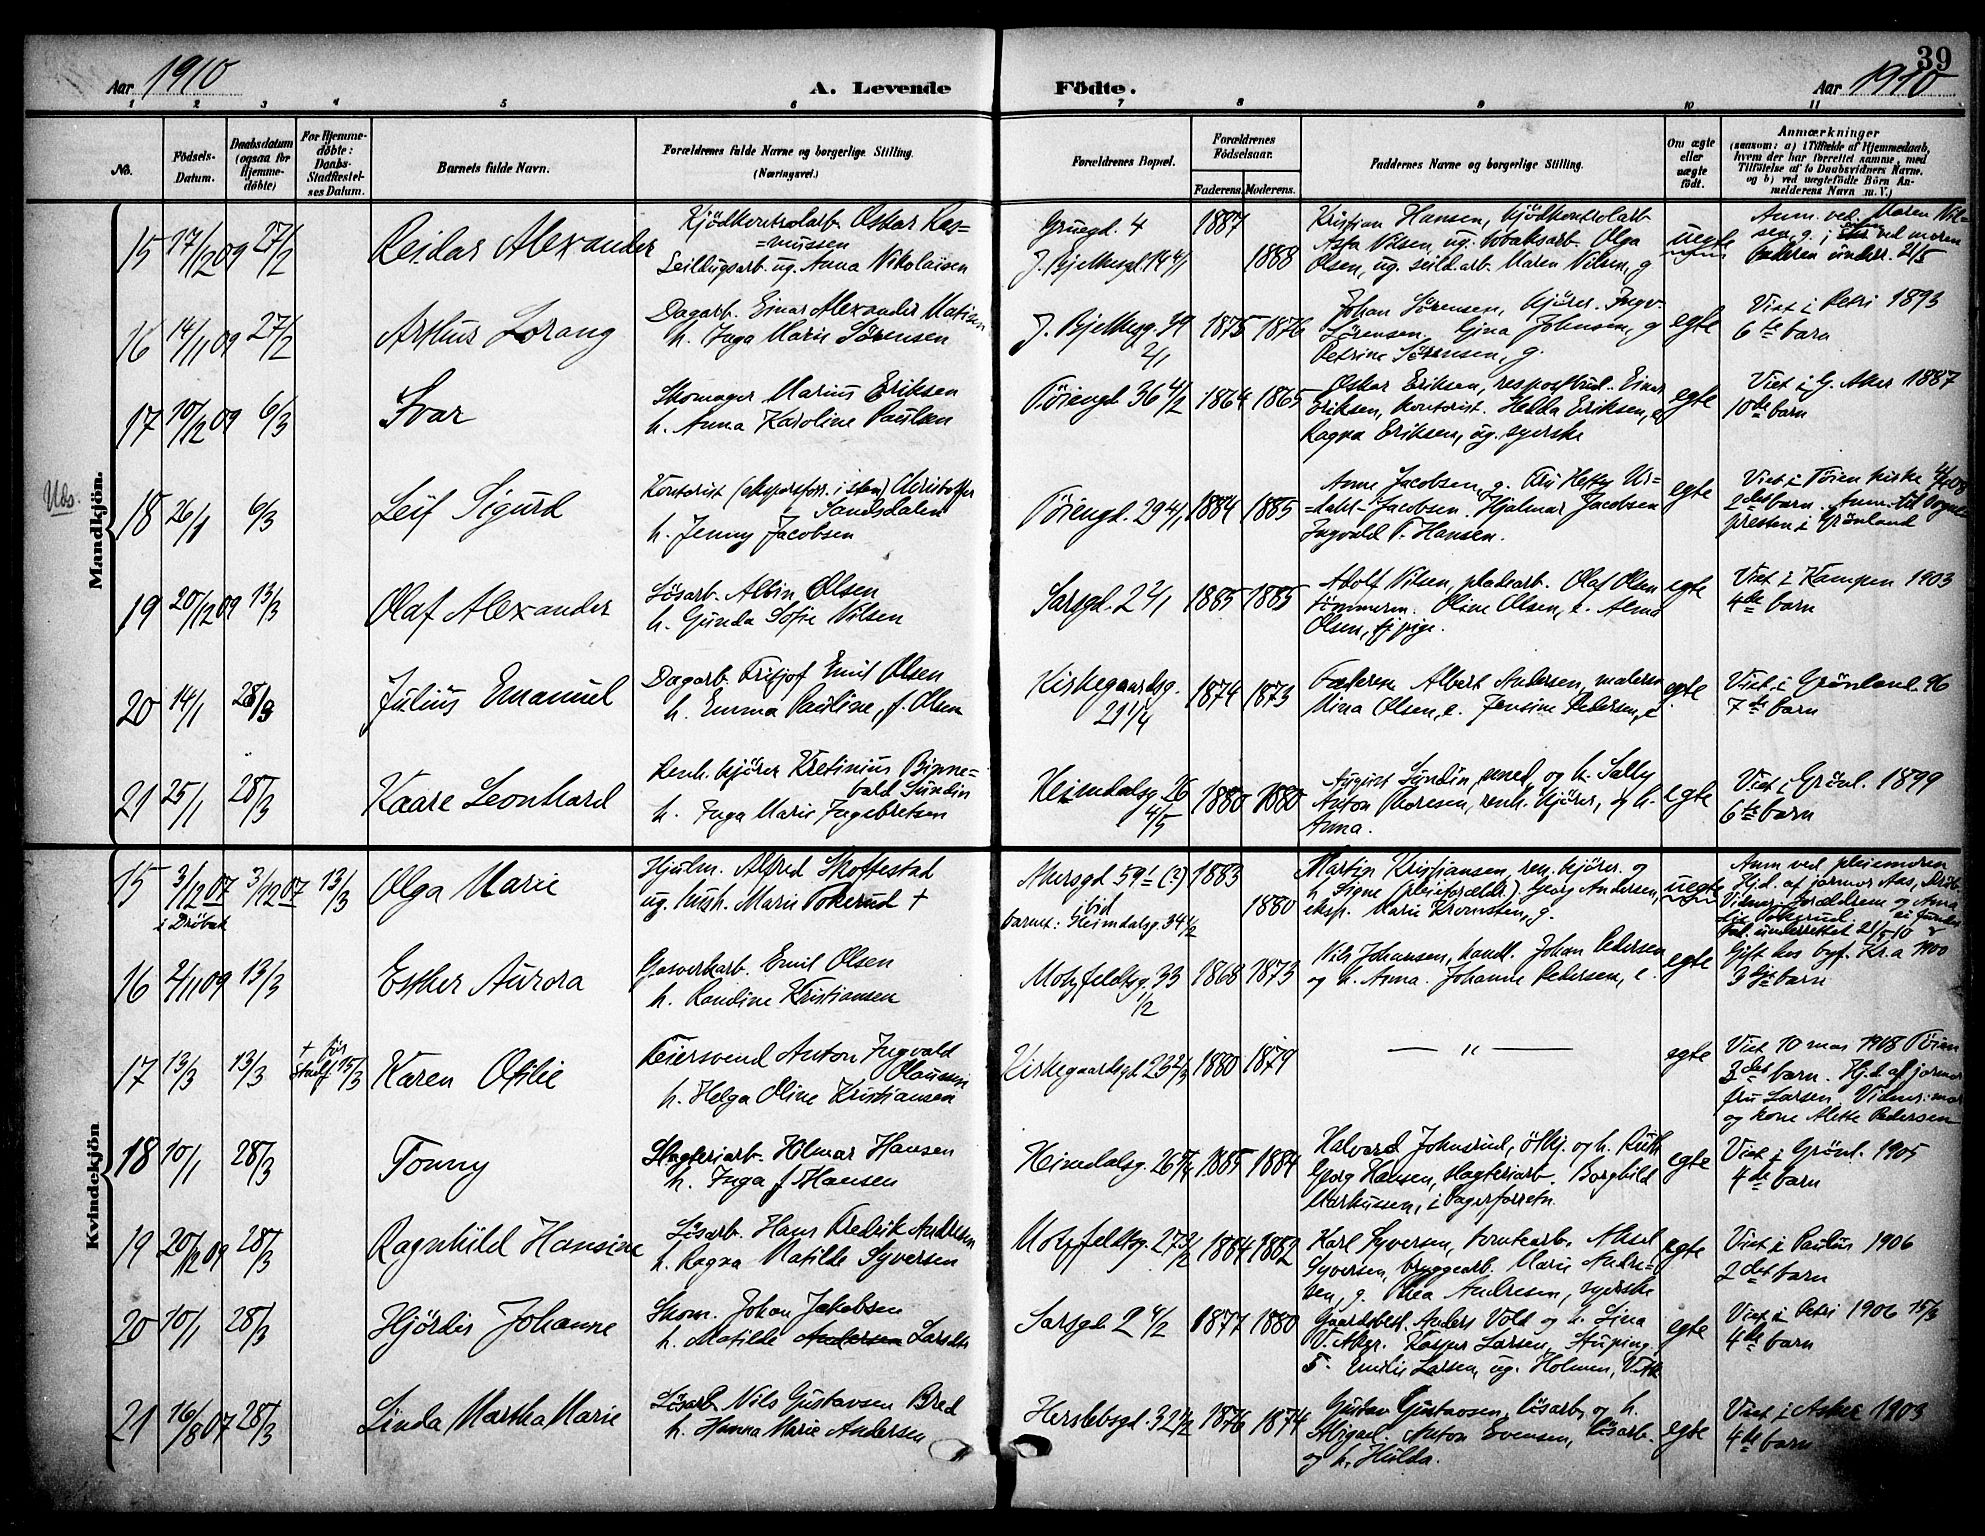 39
Aar 1910
A. Levende
Födte.
Aar 1910
1 2 3 4 5 6 7 8 9 10 11
No.
Födsels-Datum.
Daabsdatum (ogsaa for Hjemmedöbte)
For Hjemmedöbte: Daabs-Stadfæstelses Datum.
Barnets fulde Navn.
Forældrenes fulde Navne og borgerlige Stilling. (Næringsvei.)
Forældrenes Bopæl.
Forældrenes Födselsaar.
Faderens. Moderens.
Faddernes Navne og borgerlige Stilling.
Om ægte eller uægte født.
Anmærkninger
(saasom: a) i Tilfælde af Hjemmedaab, hvem der har forrettet samme, med Tilföielse af to Daabsvidners Navne, og b) ved uægtefödte Börn Anmelderens Navn m. V.)
Mandkjön.
15 17/12 09 27/2 Reidar Alexander
Kjödkontrolarb. Oskar Ras=
=mussen
Seildugsarb. ug. Anna Nikolaisen
Gruegd. 4 1887
J. Bjelkesgd. 14 4/1 1888
Kristian Hansen, kjödkontrolarb
Asta Nilsen, ug. tobaksarb. Olga
Olsen, ug. seild.arb. Maren Nilsen, g
uegte
Anm. ved Maren Nil=
sen, g. i ved moren
Faderen underr. 21/5
16 14/11 09 27/2 Arthur Lorang
Dagarb. Einar Alexander Matisen
h. Inga Marie Sörensen
J. Bjelkesg. 39
2/1
1875 1876
Johan Sörensen, kjörer. Ingv.
Sörensen, Gina Johnsen, g
Petrine Sörensen, g.
egte
Viet i Petri 1893
6te barn
17 10/12 09 6/3 Ivar
Skomager Marius Eriksen
h. Anna Karoline Paulsen
Töiengd 36 4/2 1864 1865
Oskar Eriksen, respostbud. Einar
Eriksen, kontorist. Helda Eriksen, g
Ragna Eriksen, ug. syerske
egte
Viet i G. Aker 1887
10de barn
Uds.
18 26/1 6/3 Leif Sigurd
Kontorist (eksportforr. i sten) Christoffer
Sandsdalen
h. Jenny Jacobsen
Töiengd. 29 4/1 1884 1885
Anne Jacobsen, g.
Jacobsen. Hjalmar Jacobsen
Ingvald T. Hansen.
egte
Viet i Töien kirke 4/08
2det barn. Anm. til Sogne
presten i Grönland
19 20/12 09 13/3 Olaf Alexander
Lösarb. Albin Olsen
h. Gunda Sofie Nilsen
Sarsgd. 2 4/1 1885 1885
Adolf Nilsen, pladsarb. Olaf Olsen
tömmerm. Oline Olsen, e. Alma
Olsen, tj pige.
egte
Viet i Kampen 1903
4de barn
20 14/1 28/3 Julius Emanuel
Dagarb. Fritjof Emil Olsen
h. Emma Pauline, f. Olsen
Kirkegaardsg.
21 1/4
1874 1873
Faderen Albert Andersen, malerm
Mina Olsen, e. Jensine Pedersen, e
egte
Viet i Grönland 96
7de barn
21 25/1 28/3 Kaare Leonhard
Renh. kjörer Kretinius Bipne=
bald Sundin
h. Inga Marie Ingebretsen
Heimdalsg. 26
4/5
1880 1880
August Sundin, smed, og h. Sally
Anton Thoresen, renh. kjörer, og h.
Anna.
egte
Viet i Grönl. 1899
6te barn
Kvindekjön
15 3/12 07 3/12 07 13/3 Olga Marie
i Dröbak
Hjulm. Alfred Skoftestad
ug. hush. Marie Tokerud +
Akersgd 59 1 (?) 1883
1880
barnet: Heimdalsg. 34 4/2
Martin Kristiansen, ren. kjörer og
h. Signe (pleieforældr.) Georg Andersen,
eksp. Marie Kromsten, g.
uegte
Anm ved pleiemoren
Hj.d. af jormor Aas, Dröb.
Vidner: Forældrene og Anna
Tokerud.
underrettet 21/5 10
16 2/11 09 13/3 Esther Aurora
Gasverkarb. Emil Olsen
h. Randine Kristiansen
Motzfeldsg. 33
1/2
1868 1873
Nils Johansen, handl. Johan Pedersen
og h. Anna. Johanne Pedersen, e.
egte
Gift hos byf. Kr.a 1900
3die barn
17 13/3 13/3 + för Stadf 15/3 Karen Otilie
Feiersvend Anton Ingvald
Olaussen
h. Helga Oline Kristiansen
Kirkegaardsgd 23 2/3 1880 1879
— „ —
egte
Viet 10 mas 1908 Töien
3det barn. Hj.d. af jormor
fru Larsen. Vidner: mor
og kone Alette Pedersen
18 10/1 28/3 Tonny
Slagteriarb. Hilmar Hansen
h. Inga f Hansen
Heimdalsg. 26 1885 1884
Halvard Johnsrud, ölkj. og h. Ruth
Georg Hansen, slagteriarb. Borghild
Markussen, i Papirforretn.
egte
Viet i Grönl. 1905
4de barn
19 20/12 09 28/3 Ragnhild Hansine
Lösarb. Hans Fredrik Andresen
h. Ragna Matilde Syversen
Motzfeldsg. 27 3/2 1884 1882
Karl Syversen, tomtearb. Aksel
Syversen, bryggearb. Marie Andre=
sen, g. Thea Andresen, syerske
egte
Viet i Paulus 1906
2det barn
20 10/1 28/3 Hjördis Johanne
Skom. Johan Jakobsen
h. Matilde Andersen Larsdtr
Sarsgd 2 4/2 1877 1880
Gaardsbest. Anders Vold og h. Lina
V. Aker. Kasper Larsen, Stuping.
5. Emilie Larsen, ug. Holmen, V.
egte
Viet i Petri 1906 15/3
4de barn
21 16/8 07 28/3 Linda Martha Marie
Lösarb Nils Gustavsen Bred
h. Hanna Marie Andersen
Herslebsgd. 32 1876 1874
Gustav Gustavsen, lösarb, og h.
Abigael. Anton Evensen, lösarb.
og h. Hulda.
egte
Viet i Asker 1903
4de barn